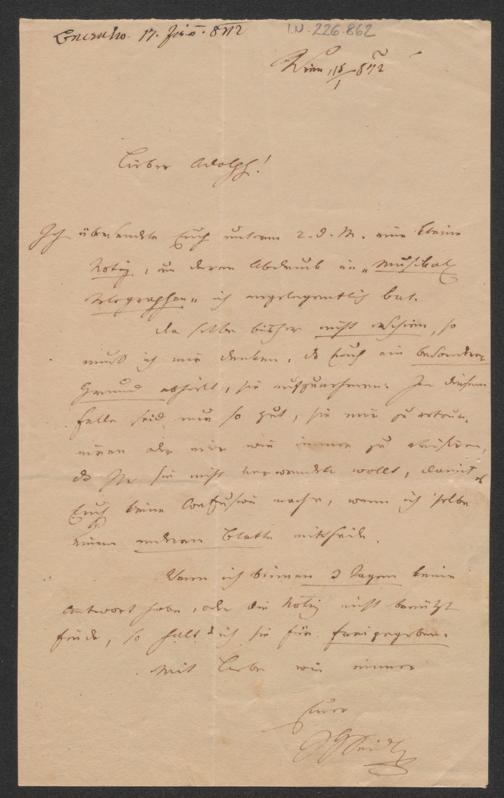 17. 872
I.N. 226.862
Wien, 15/1 872
Lieber Adolph!
Ich übersendete Euch unterm 2. d. M. eine kleine
Notiz, um deren Abdruck im „Musikal.
Telegraphen" ich angelegentlich bat.
Da selbe bisher nicht erschien, so
muß ich mir denken, daß Euch ein besonderer
Grund abhielt, sie aufzunehmen. In diesem
Falle seid nun so gut, sie mir zu
oder mir wie immer zu
daß Ihr sie nicht verwenden wollt, damit ich
Euch keine Confusion mache, wenn ich selbe
einem anderen Blatte mittheile.
Wenn ich binnen 3 Tagen keine
Antwort habe, oder die Notiz nicht benützt
finde, so halte ich sie für freigegeben.
Mit Liebe wie immer
Euer